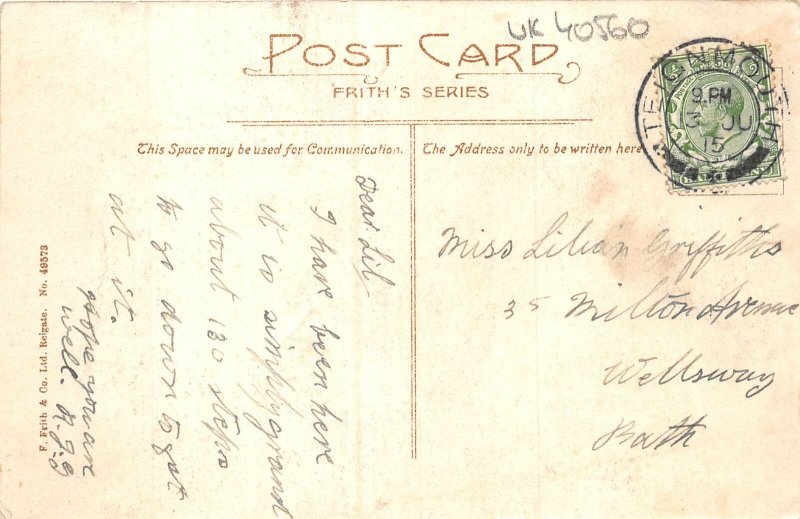 UK 40560
POST CARD
FRITH'S SERIES
TEIGNMOUTH
9.PM
3 JU
15
This Space may be used for Communication.
The Address only to be written here
Dear Lil
I have been here
it is simply grand
about 130 steps
to go down to get
at it.
Hope you are
well.
Miss Lilian Griffiths
35 Milton Avenue
Wellsway
Bath
F. Frith & Co. Ltd. Reigate. No. 49573